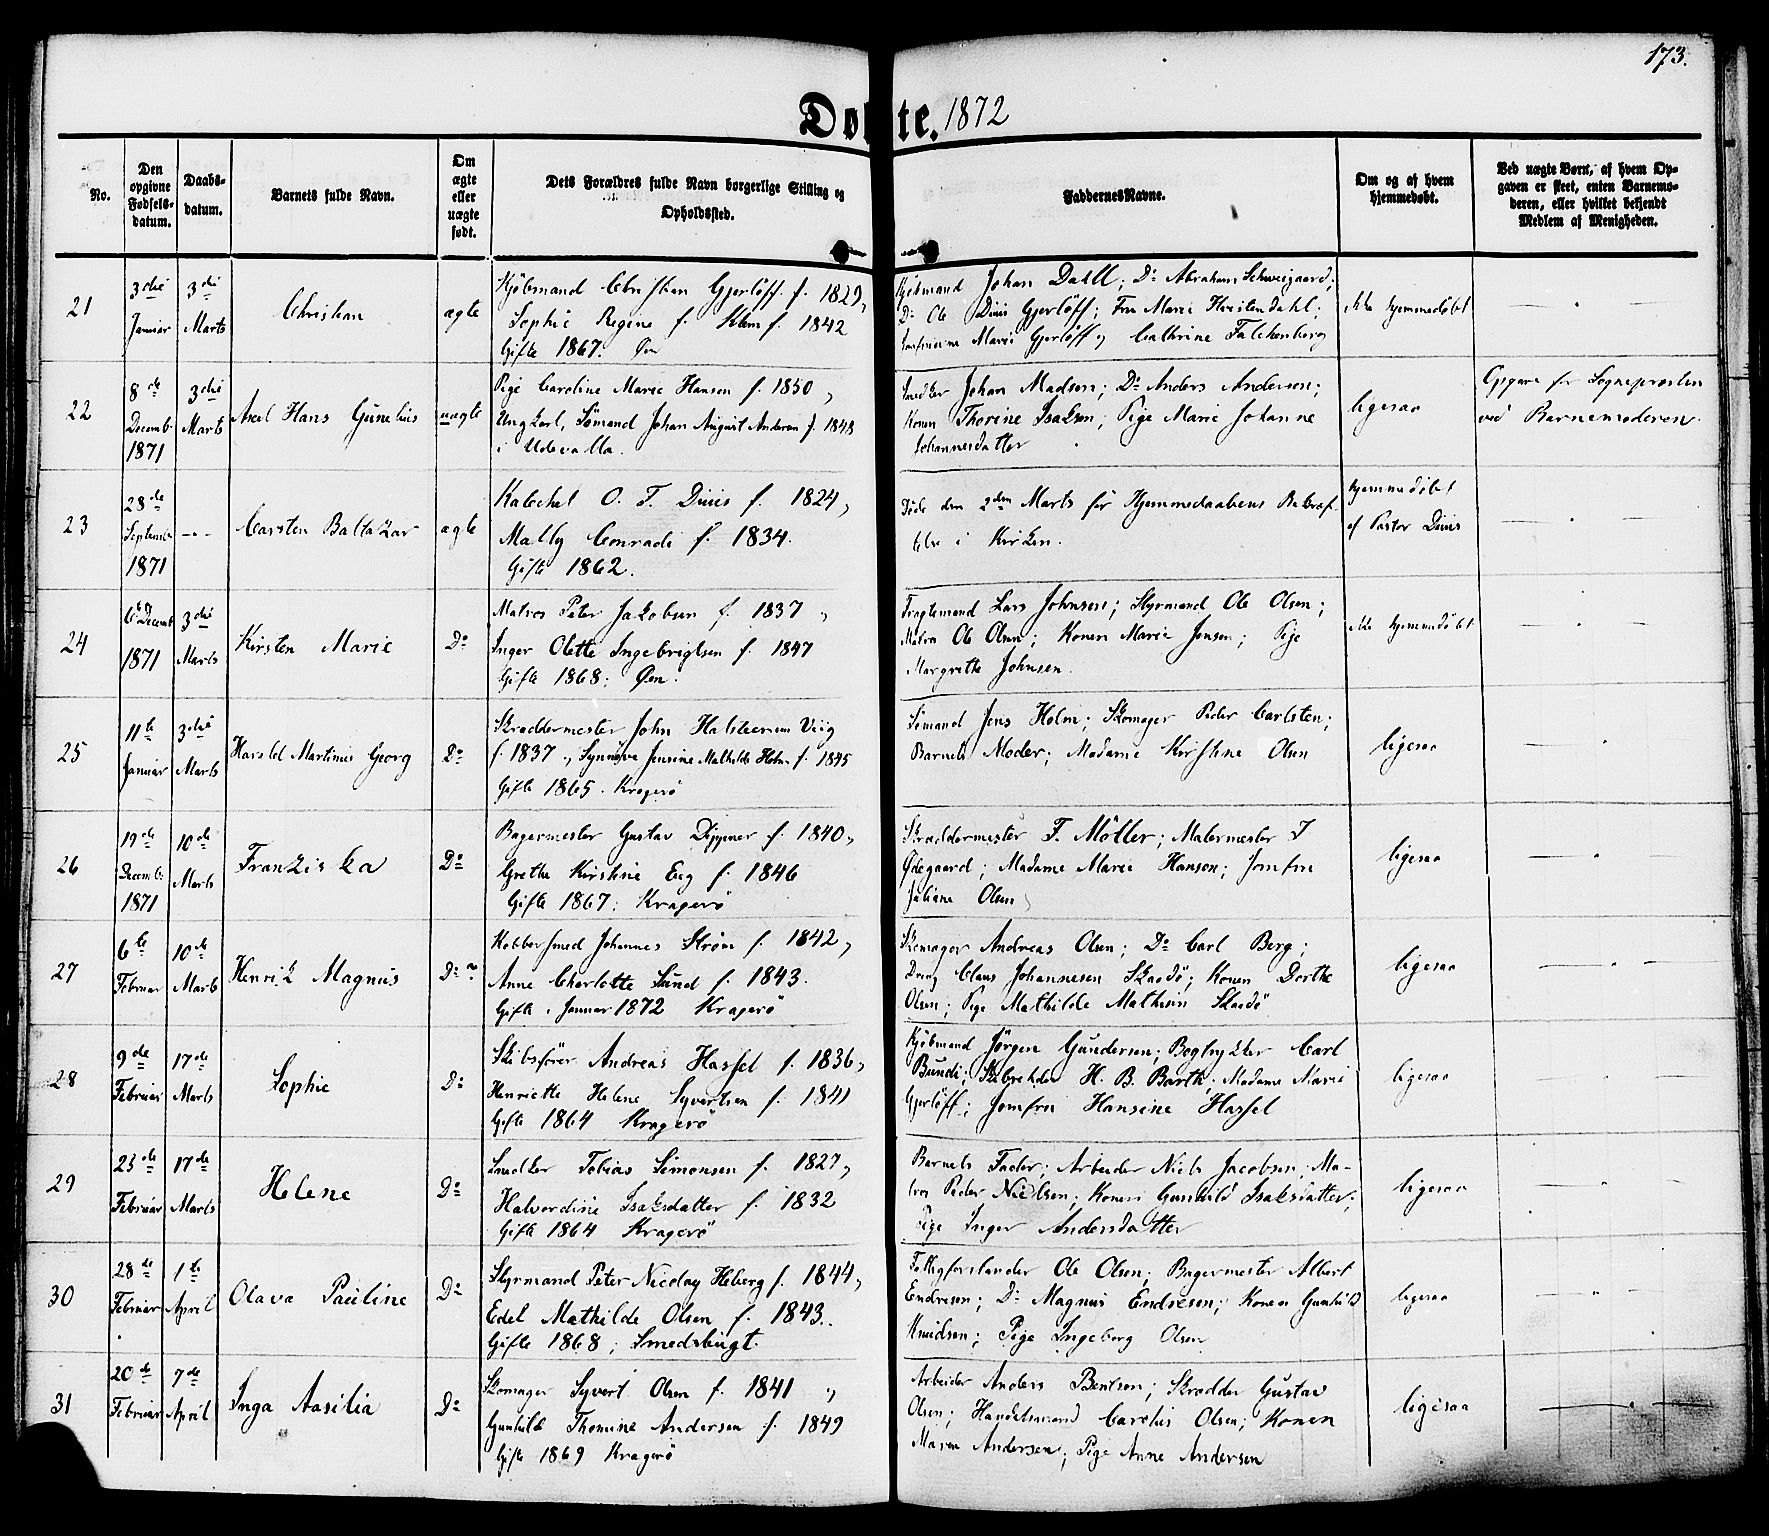 173.
Døbte. 1872
No.
Den opgivne Fødsels-datum.
Daabs-datum.
Barnets fulde Navn.
Om ægte eller uægte født.
Dets Forældres fulde Navn borgerlige Stilling og Opholdssted.
Faddernes Navne.
Om og af hvem hjemmedøbt.
Ved uægte Børn, af hvem Opgaven er skeet, enten Barnemoderen, eller hvilket bekjendt Medlem af Menigheden.
21
3die Januar
3die Marts
Christian
ægte
Kjøbmand Christian Gjerløff f. 1829,
Sophie Regine f. Klem f. 1842
Gifte 1867. Øen
Kjøbmand Johan Dahll; Do Abraham Schweigaard;
Do Ole Duus Gjerløff; Fru Marie Kirsten Dahl;
Jomfruerne Marie Gjerløff og Cathrine Falckenberg
ikke hjemmedøbt
22
8de Decemb. 1871
3die Marts
Axel Hans Gunelius
uægte
Pige Caroline Marie Hansen f. 1850,
Ungkarl, Sömand Johan August Andersen f. 1848
i Udevalla.
Snedker Johan Madsen; Do Anders Andersen;
Konen Thorine Isaksen; Pige Marie Johanne
Johannesdatter
ligesaa
Opgave for Sognepresten
ved Barnemoderen.
23
28de Septembr 1871
Carsten Baltazar
ægte
Kateket O. T. Duus f. 1824,
Mally Conradi f. 1834.
Gifte 1862.
Døde den 2den Marts før Hjemmedaabens Bekræf-
telse i Kirken.
hjemmedøbt
af Pastor Duus
24
6te Decemb 1871
3die Marts
Kirsten Marie
Do
Matros Peter Jakobsen f. 1837,
Inger Olette Ingebrigtsen f. 1847
Gifte 1868; Øen.
Fragtemand Lars Johnsen; Styrmand Ole Olsen;
Matros Ole Olsen; Konen Marie Jensen; Pige
Margrethe Johnsen.
ikke hjemmedøbt
25
11te Januar
3die Marts
Harald Martinius Georg
Do
Skræddermester John Halsteensen Viig
f. 1837, Synnøve Jensine Mathilde Holm f. 1845
Gifte 1865. Kragerö
Sömand Jens Holm; Skomager Peder Carlsten;
Barnets Moder; Madame Kirstine Olsen
ligesaa
26
19de Decemb. 1871
10de Marts
Franziska
Do
Bagermester Gustav Dippner f. 1840,
Grethe Kirstine Eeg f. 1846
Gifte 1867; Kragerö
Skræddermester F. Möller; Malermester J
Ødegaard; Madame Marie Hansen; Jomfru
Juliane Olsen
ligesaa
27
6te Februar
10de Marts
Henrik Magnus
Do ?
Kobbersmed Johannes Strøm f. 1842,
Anne Charlotte Lund f. 1843.
Gifte i Januar 1872 Kragerö
Skomager Andreas Olsen; Do Carl Berg;
Dreng Claus Johannesen Skaadö; Konen Dorthe
Olsen; Pige Mathilde Mathisen Skaadö
ligesaa
28
9de Februar
17de Marts
Sophie
Do
Skibsfører Andreas Hassel f. 1836,
Henriette Helene Syvertsen f. 1841
Gifte 1864 Kragerö
Kjøbmand Jörgen Gundersen; Bogtrykker Carl
Bundi; Skibsreder H. B. Barth; Madame Marie
Gjerløff; Jomfru Hansine Hassel
ligesaa
29
23de Februar
17de Marts
Helene
Do
Snedker Tobias Simonsen f. 1827,
Halvordine Isaksdatter f. 1832
Gifte 1864 Kragerö
Barnets Fader; Arbeider Niels Jacobsen; Ma-
tros Peder Nielsen; Konen Gunhild Isaksdatter;
Pige Inger Andersdatter
ligesaa
30
28de Februar
1te April
Olava Pauline
Do
Styrmand Peter Nicolay Heberg f. 1844,
Edel Mathilde Olsen f. 1843.
Gifte 1868; Smedsbugt.
Fattigforstander Ole Olsen; Bagermester Albert
Endresen; Do Magnus Endresen; Konen Gunhild
Knudsen; Pige Ingeborg Olsen
ligesaa
31
20de Februar
7de April
Inga Aasilia
Do
Skomager Syvert Olsen f. 1841,
Gunhild Thomine Andersen f. 1849
Gifte 1869 Kragerö
Arbeider Anders Bentsen; Skrædder Gustav
Olsen; Handelsmand Carelius Olsen; Konen
Maren Andersen; Pige Anne Andersen
ligesaa